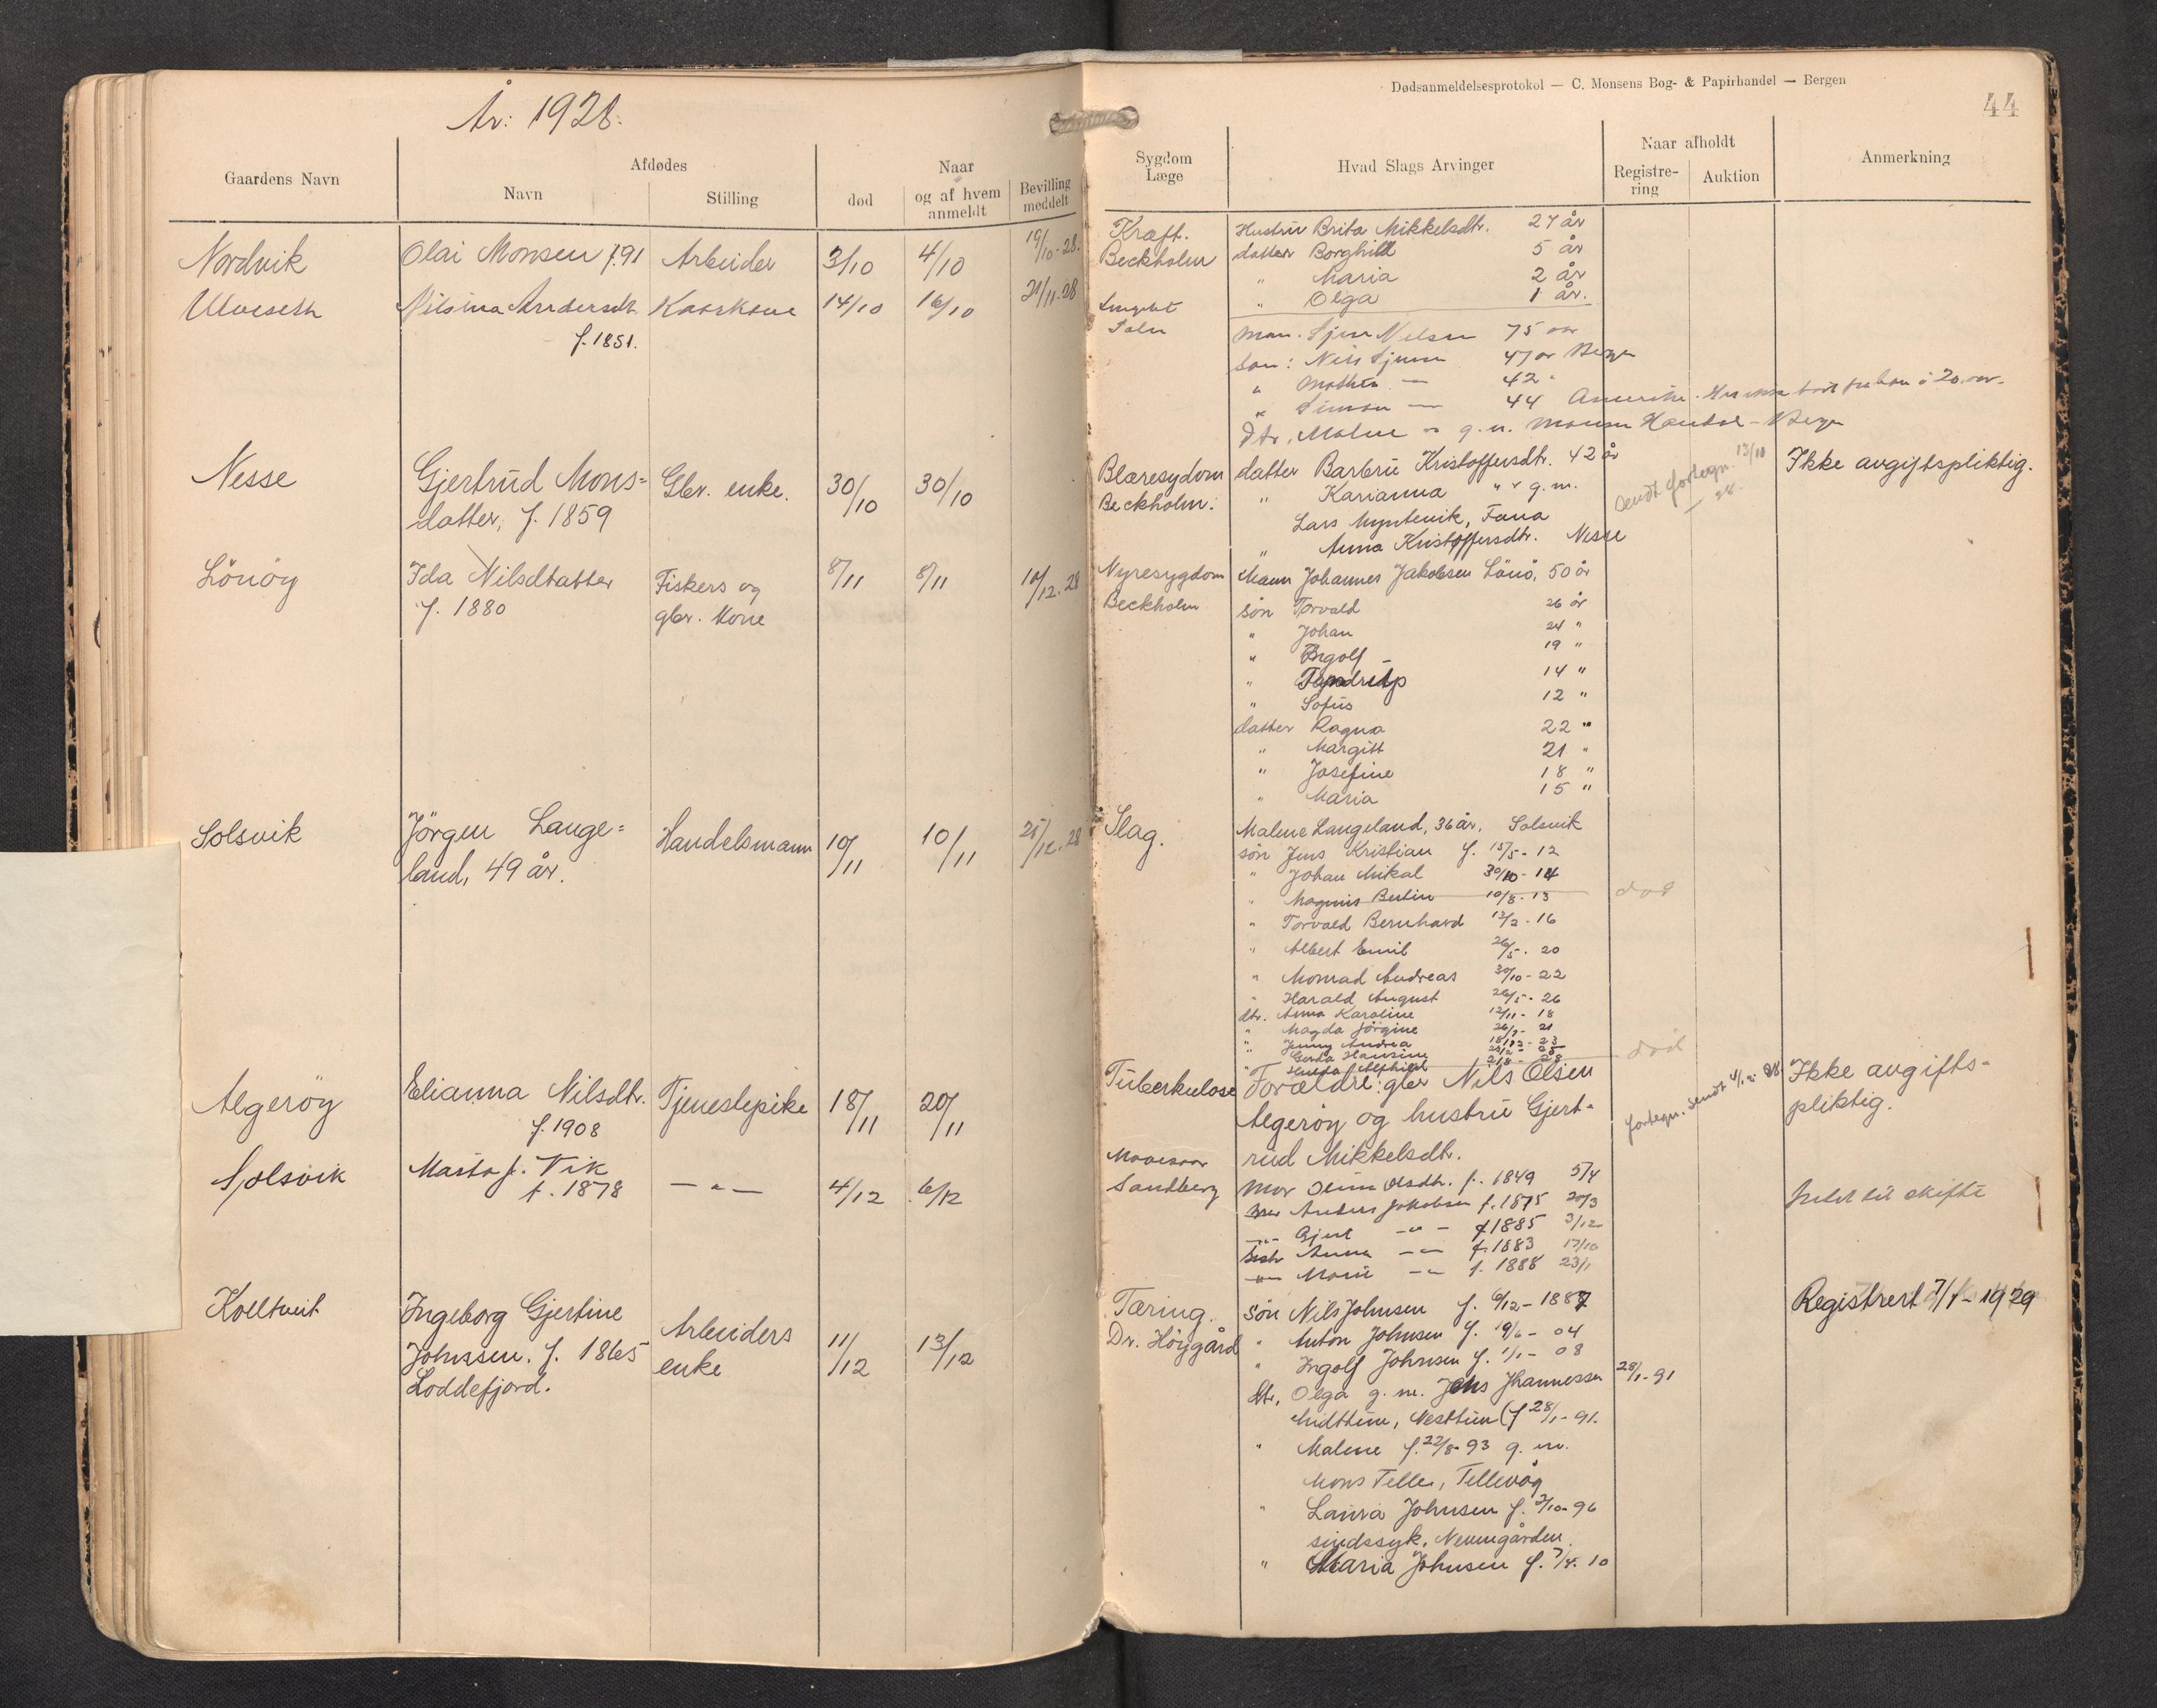 År: 1928.
Gaardens Navn
Afdødes
Navn
Stilling
Naar
død
og af hvem anmeldt
Bevilling meddelt
Nordvik
Olai Monsen f. 91
Arbeider
3/10
4/10
19/10-28.
Ulveseth
Nilsina Andersdt.
f. 1851.
Kaarkone
14/10
16/10
21/11-28
Nesse
Gjertrud Mons=
datter, f. 1859
Gbr. enke.
30/10
30/10
Lönöy
Ida Nilsdtatter
f. 1880
Fiskers og
gbr. kone
8/11
8/11
10/12.28
Solsvik
Jörgen Lange=
land, 49 år.
Handelsmann
10/11
10/11
25/12.28
Algeröy
Elianna Nilsdtr.
f. 1908
Tjenestepike
18/11
20/11
Solsvik
Marta J. Vik
f. 1878
— " —
4/12
6/12
Kolltveit
Ingeborg Gjertine
Johnssen. f. 1865
Loddefjord.
Arbeiders
enke
11/12
13/12
Dødsanmeldelsesprotokol — C. Monsens Bog- & Papirhandel — Bergen
44
Sygdom
Læge
Hvad Slags Arvinger
Naar afholdt
Registre-
ring
Auktion
Anmerkning
Kræft.
Beckholm
Hustru Brita Mikkelsdtr. 27 år
datter Borghild 5 år
" Maria 2 år
" Olga 1 år.
Man. Sjur Nilsen 75 aar
Søn: Nils Sjursen 47 år Bergen
" Mathias — 42 "
" Simon — 44 Amerika.
Dtr. Malene — g. m. Monsen Bergen
Blæresydom
Beckholm.
datter Barbru Kristoffersdtr. 42 år
" Karianna " " g.m.
Lars Myntevik, Fana
" Anna Kristoffersdtr. Nesse
sendt fortegn. 13/11 28.
Ikke avgiftspliktig.
Nyresygdom
Beckholm
Mann Johannes Jakobsen Lönö, 50 år
sön Torvald 26 år
" Johan 24 "
" Ingolf 19 "
" 14 "
" Sofus 12 "
datter Ragna 22 "
" Margitt 21 "
" Josefine 18 "
" Maria 15 "
Slag.
Malene Langeland, 36 år, Solsvik
sön Jens Kristian f. 15/5-12
" Johan Mikal 30/10-14
" Magnus Berlin 10/8-13 død
" Torvald Bernhard 12/2-16
" Albert Emil 26/5-20
" Monrad Andreas 30/10-22
" Harald August 26/5-26
dtr. Anna Karoline 12/11-18
" Magda Jörgine 26/7-21
" Jenny Andrea 18/12-23
" Gerda Hansine
" Hulda Alfhild 21/8-28 död
Tuberkulose
Forældre: gbr Nils Olsen
Algeröy og hustru Gjert-
rud Mikkelsdtr.
fortegn. sendt 4/12 28
Ikke avgifts-
pliktig.
Sandberg
Mor Olsdtr. f. 1849 5/4
Bror Anders Jakobsen f. 1875 20/3
— " — Gjert — " — f. 1885 3/12
Søstr Anna — " — f. 1883 17/10
— " — Marie — " — f. 1888 23/1
Meldt til skifte
Tæring.
Dr. Höygård
Sön Nils Johnsen f. 9/12-1887
" Anton Johnsen f. 19/6-04
" Ingolf Johnsen f. 1/1-08
dtr. Olga g. m. Jens Johannessen 28/1-91
Midttun, Nesttun (f 28/1-91.
" Malene f. 22/8-93 g. m.
Mons Telle, Tellevåg
" Laura Johnsen f. 3/10-96
sindssyk, Neevengården
" Maria Johnsen f. 7/4.10
Registrert 7/1-1929